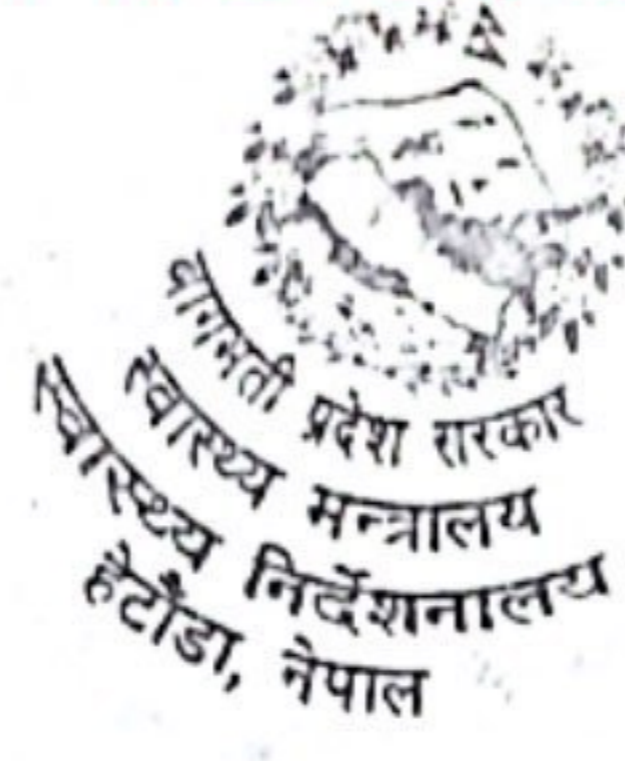 वागमती प्रदेश सरकार
स्वास्थ्य मन्त्रालय
स्वास्थ्य निर्देशनालय
हेटौंडा, नेपाल